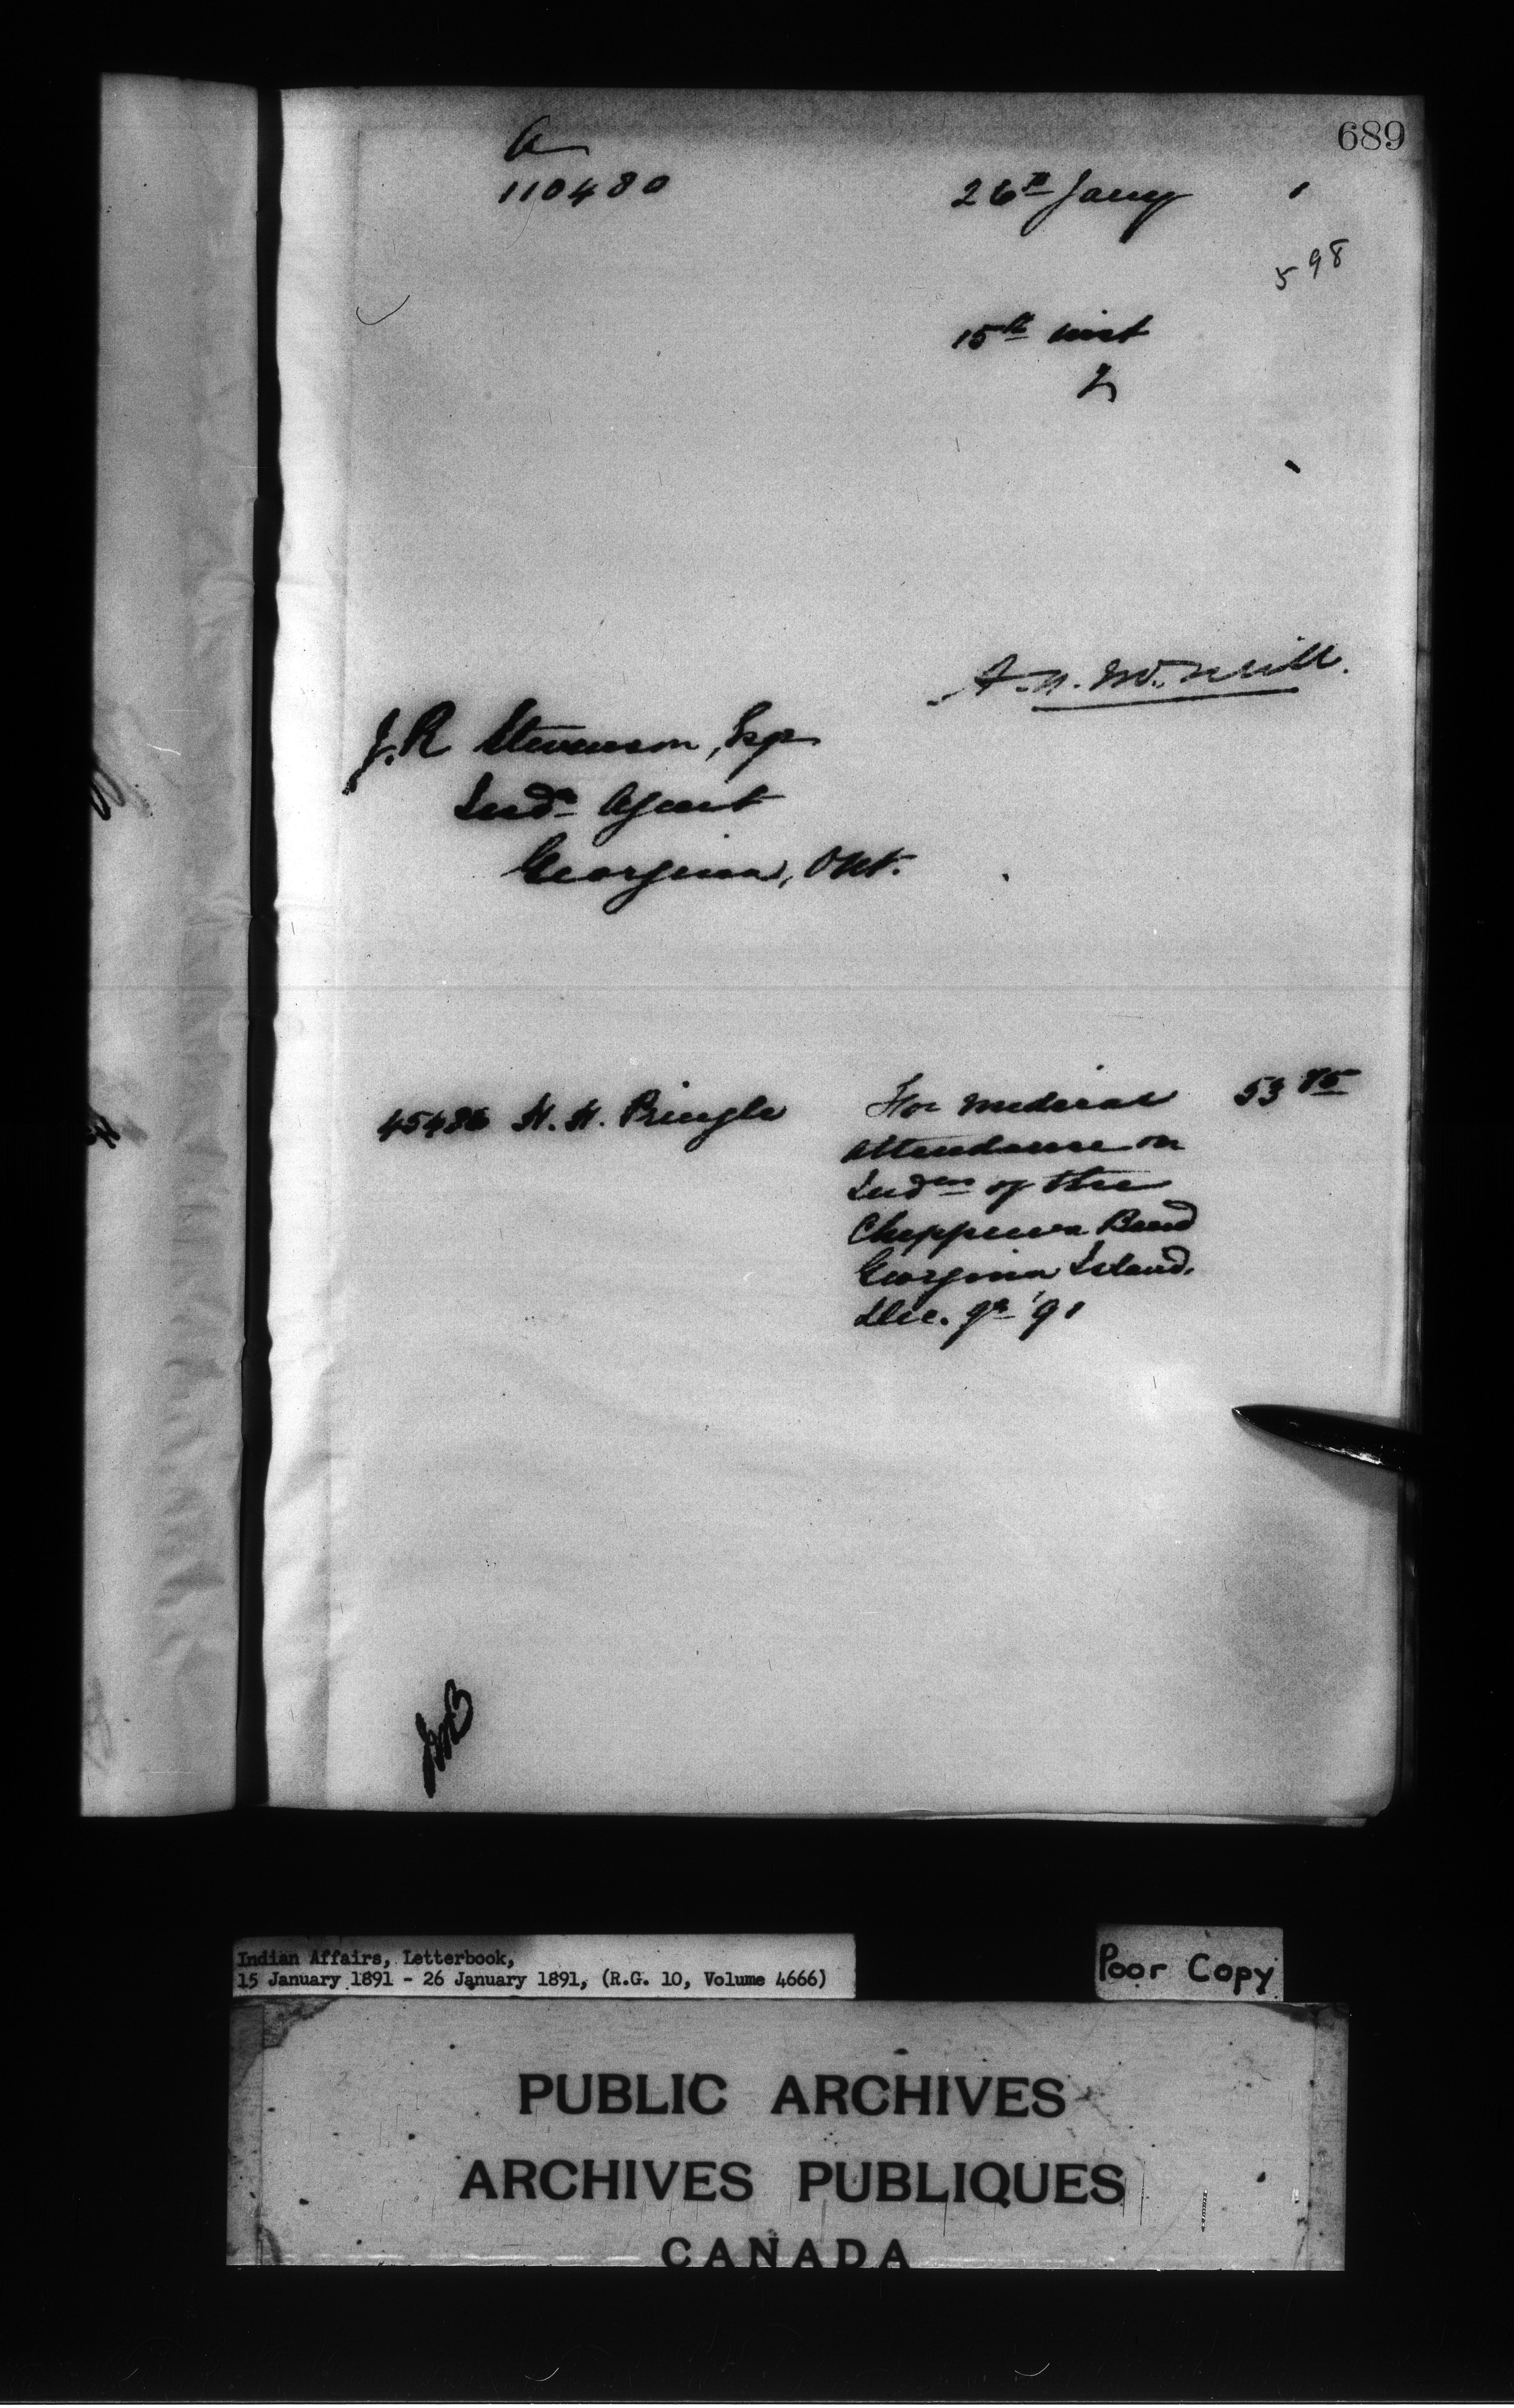 689
a
110480
26th Jany 1
598
15th inst
J. R Stevenson, Esqr
Indn Agent
Georgina, Ont.
45486 H. H. Pringle For medical 53 85
attendance on
Indns of the
Chippewa Band
Georgina Island.
Dec. qr '91
Indian Affairs, Letterbook,
15 January 1891 - 26 January 1891, (R.G. 10, Volume 4666)
Poor Copy
PUBLIC ARCHIVES
ARCHIVES PUBLIQUES
CANADA